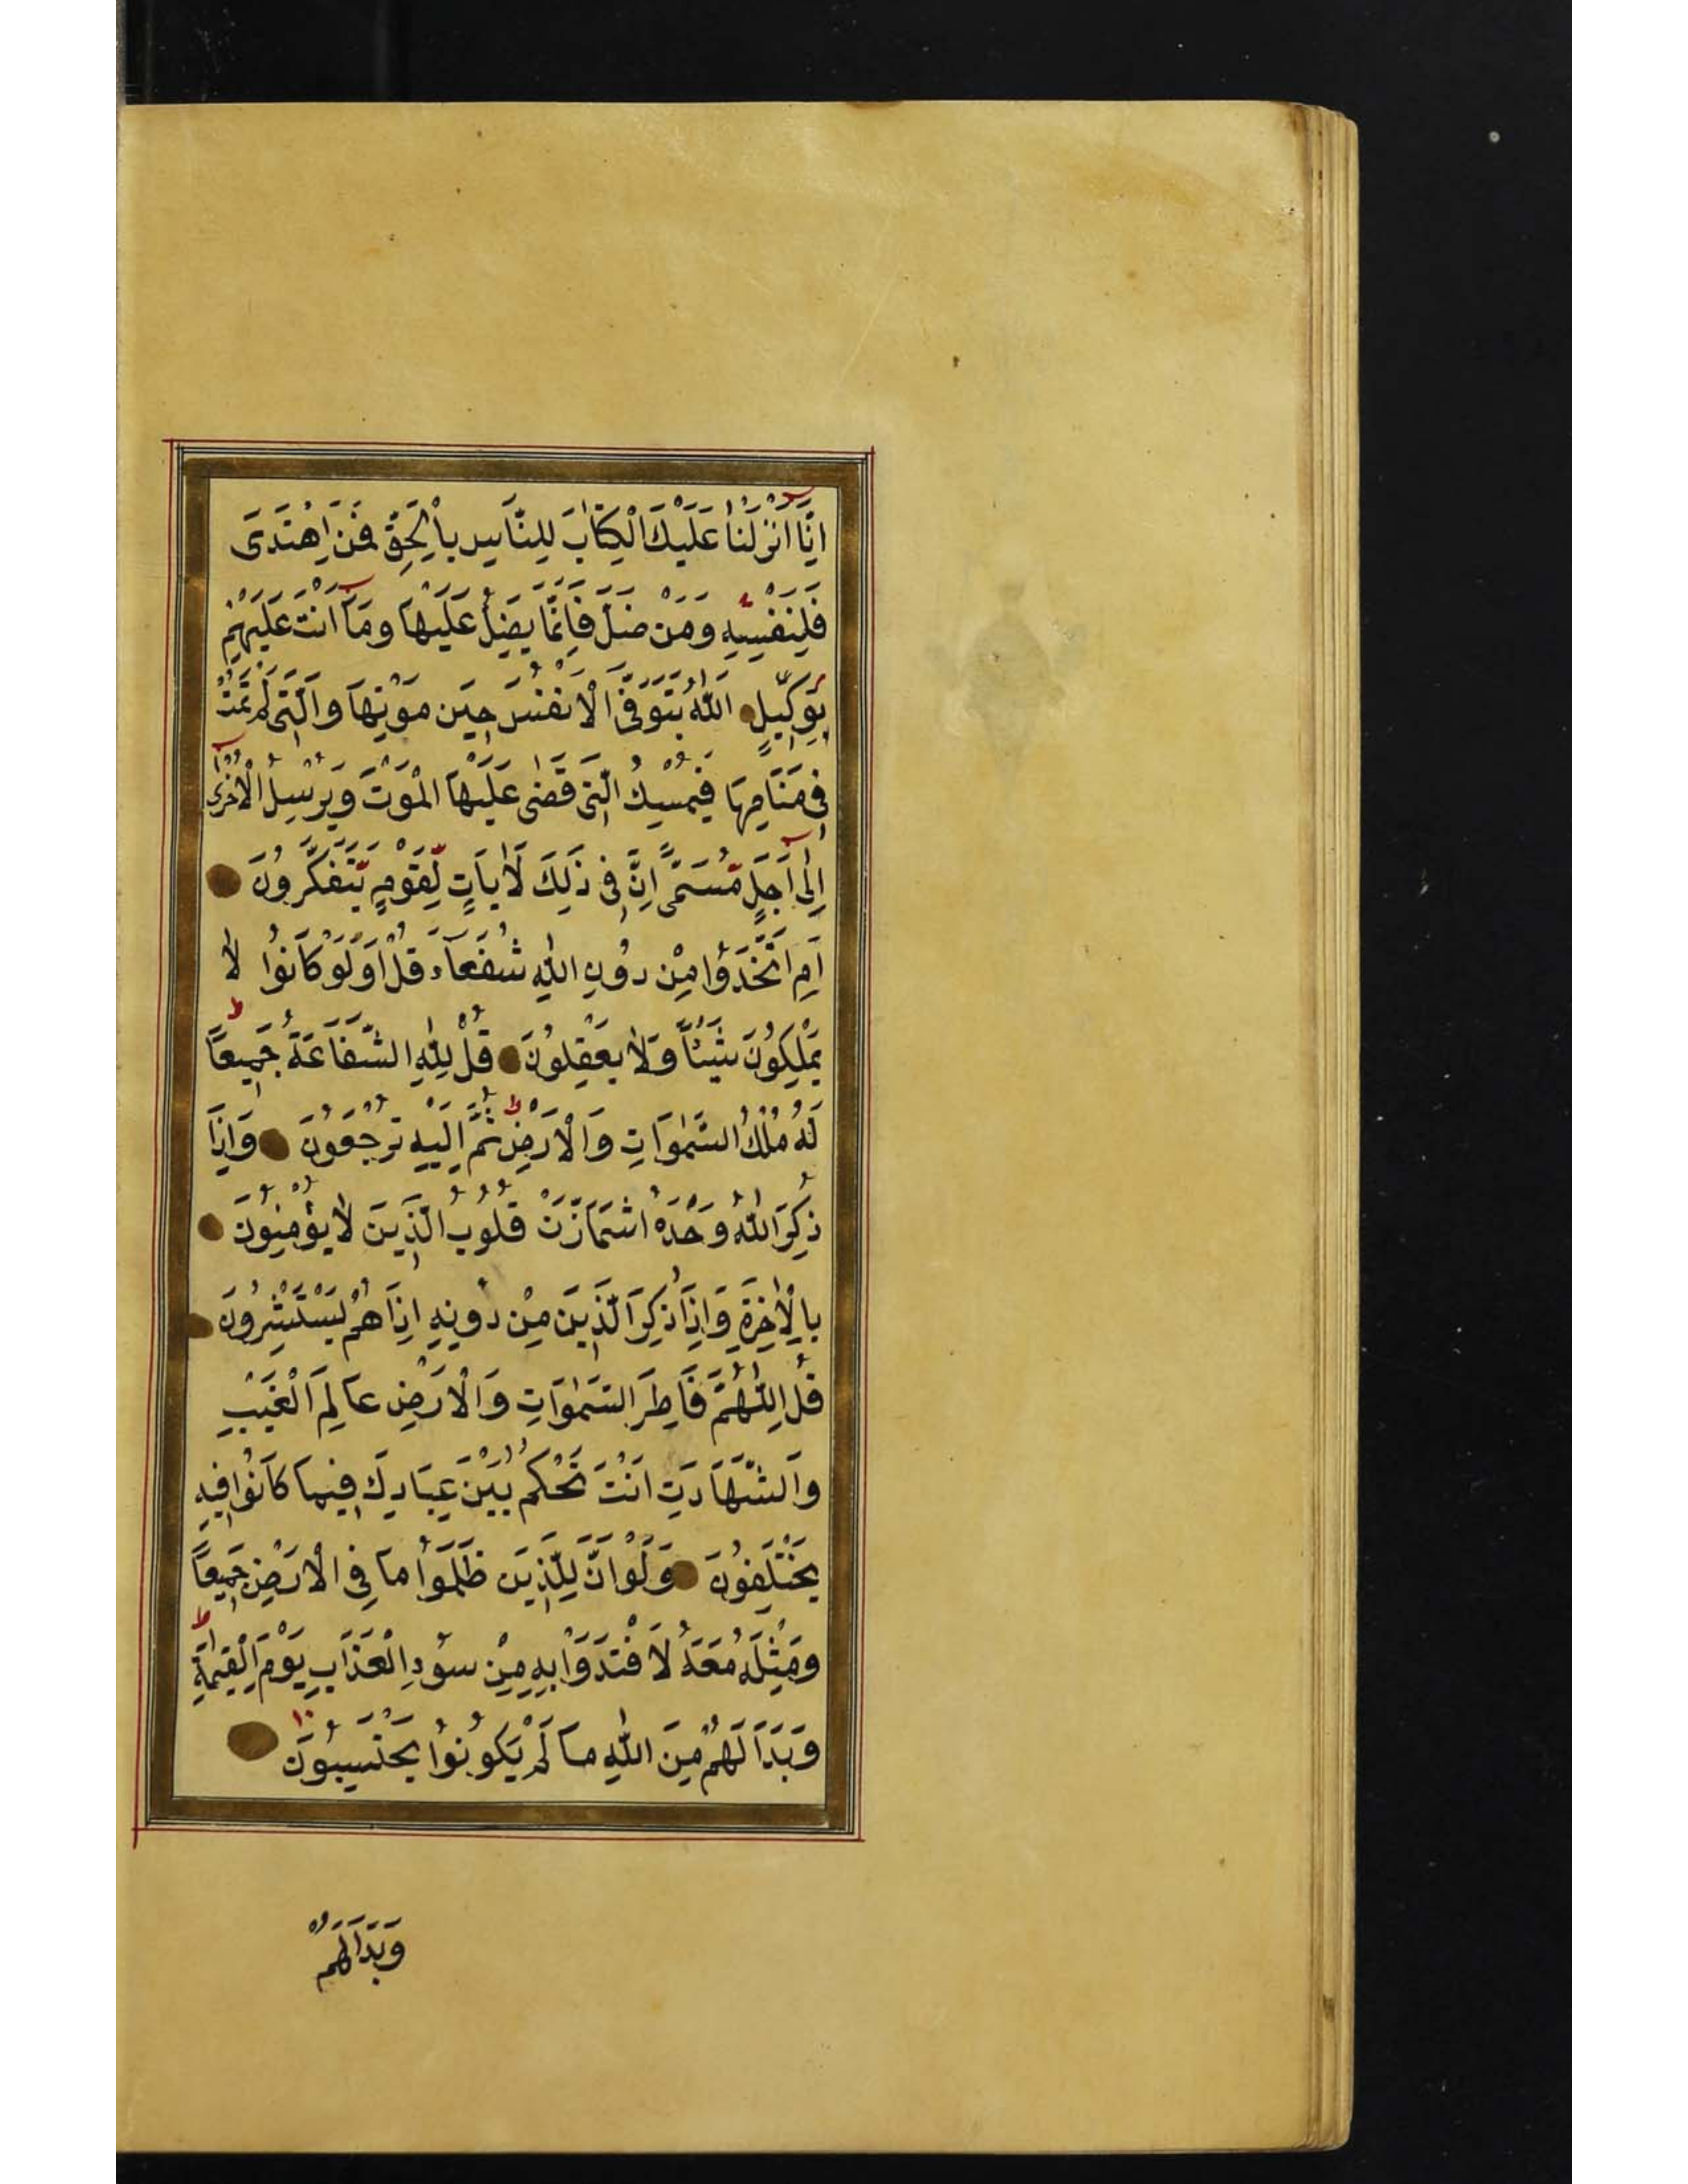 اِنَّا اَنْزَلْنَا عَلَيْكَ الْكِتَابَ لِلنَّاسِ بِالْحَقِّ فَمَنِ اهْتَدَى
فَلِنَفْسِهِ وَمَنْ ضَلَّ فَاِنَّمَا يَضِلُّ عَلَيْهَا وَمَا اَنْتَ عَلَيْهِمْ
بِوَكِيلٍ اَللّٰهُ يَتَوَفَّى الْاَنْفُسَ حِينَ مَوْتِهَا وَالَّتِى لَمْ تَمُتْ
فِى مَنَامِهَا فَيُمْسِكُ الَّتِى قَضٰى عَلَيْهَا الْمَوْتَ وَيُرْسِلُ الْاُخْرٰى
اِلٰى اَجَلٍ مُّسَمًّى اِنَّ فِى ذَلِكَ لَاٰيَاتٍ لِّقَوْمٍ يَّتَفَكَّرُونَ
اَمِ اتَّخَذُوا مِنْ دُونِ اللّٰهِ شُفَعَآءَ قُلْ اَوَلَوْ كَانُوا لَا
يَمْلِكُونَ شَيْئًا وَّلَا يَعْقِلُونَ قُلْ لِلّٰهِ الشَّفَاعَةُ جَمِيعًا
لَهُ مُلْكُ السَّمٰوَاتِ وَالْاَرْضِ ثُمَّ اِلَيْهِ تُرْجَعُونَ وَاِذَا
ذُكِرَ اللّٰهُ وَحْدَهُ اشْمَاَزَّتْ قُلُوبُ الَّذِينَ لَا يُؤْمِنُونَ
بِالْاٰخِرَةِ وَاِذَا ذُكِرَ الَّذِينَ مِنْ دُونِهِ اِذَا هُمْ يَسْتَبْشِرُونَ
قُلِ اللّٰهُمَّ فَاطِرَ السَّمٰوَاتِ وَالْاَرْضِ عَالِمَ الْغَيْبِ
وَالشَّهَادَتِ اَنْتَ تَحْكُمُ بَيْنَ عِبَادِكَ فِيمَا كَانُوا فِيهِ
يَخْتَلِفُونَ وَلَوْ اَنَّ لِلَّذِينَ ظَلَمُوا مَا فِى الْاَرْضِ جَمِيعًا
وَمِثْلَهُ مَعَهُ لَافْتَدَوْا بِهِ مِنْ سُوءِ الْعَذَابِ يَوْمَ الْقِيٰمَةِ
وَبَدَا لَهُمْ مِنَ اللّٰهِ مَا لَمْ يَكُونُوا يَحْتَسِبُونَ
وَبَدَا لَهُمْ